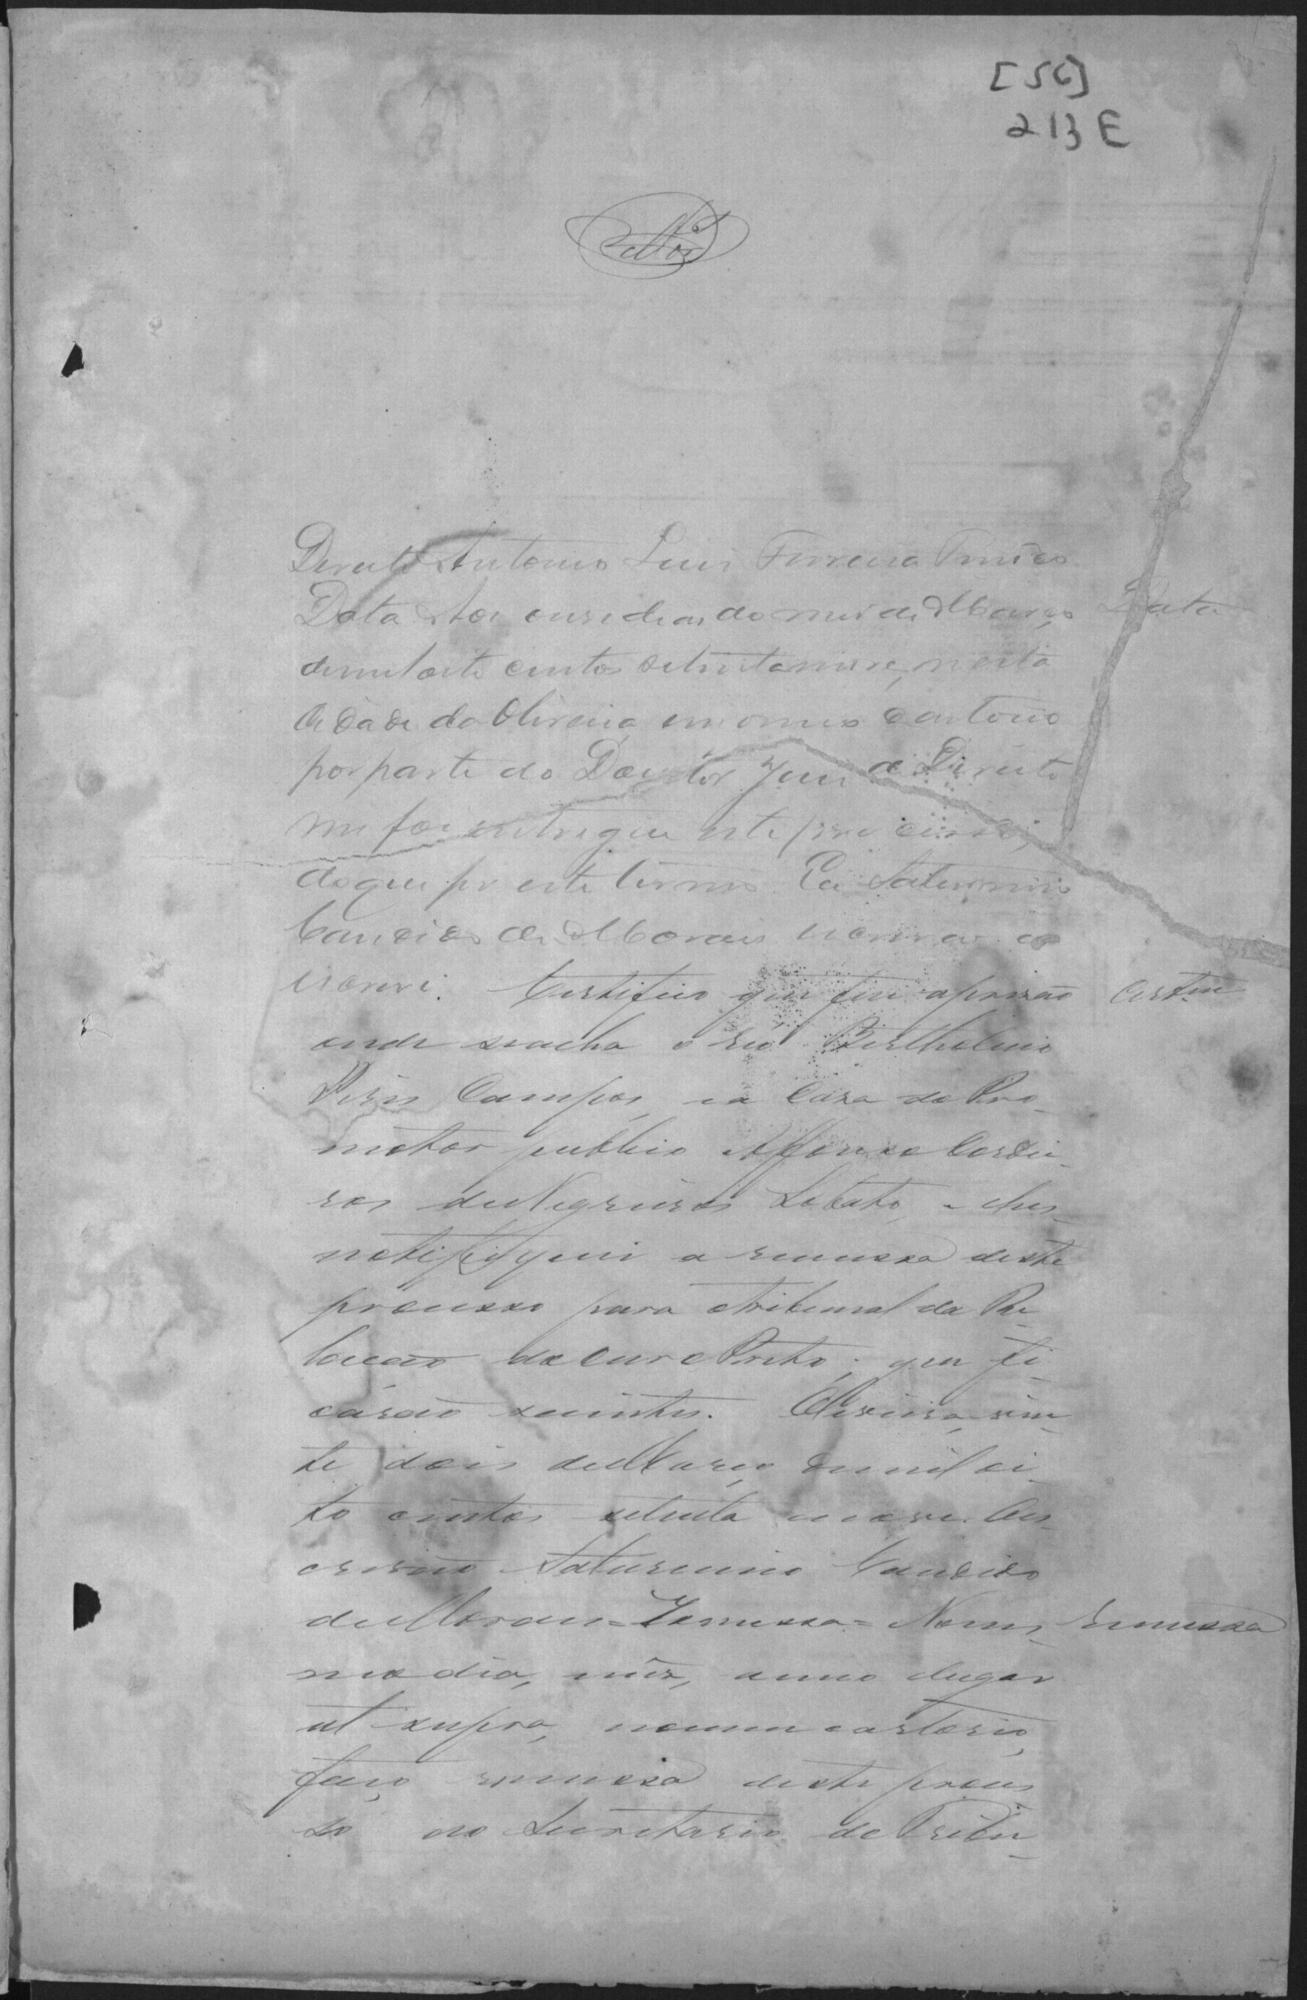 [56]
213 E
Direito Antonio Luis Ferreira
Data Aos onse dias do mes de Março Data
de mil oito centos setenta nove, nesta
cidade da Oliveira em o meu Cartorio
por parte do Doutor Juis de Direito
me foi entregue este processo,
do que fis este termo. Eu Saturnino
Candido de Morais escrivão o
escrevi. Certifico que fui a prisão Certam
onde seacha o réo Bertholino
Pires Campos, e a Casa do Pro-
motor publico Affonso Cordei-
ros de Negreiros Lobato, e lhes
notifiquei a remessa deste
processo para o Tribunal da Re-
lação do Ouro Preto; que fi-
carão scientes. Oliveira, vin-
te dois de Março de mil oi-
to centos setenta nove. O es-
crivão Saturnino Candido
de Morais = Remessa = No mes- Remessa
mo dia, mês, anno e lugar
ut supra, no meu cartorio,
faço remessa deste proces
so ao Secretario do Tribu-